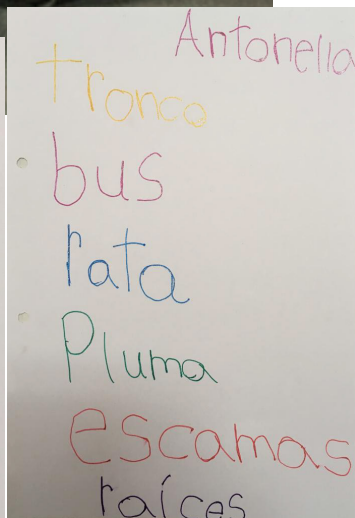 Antonella
tronco
bus
rata
Pluma
escamas
raíces